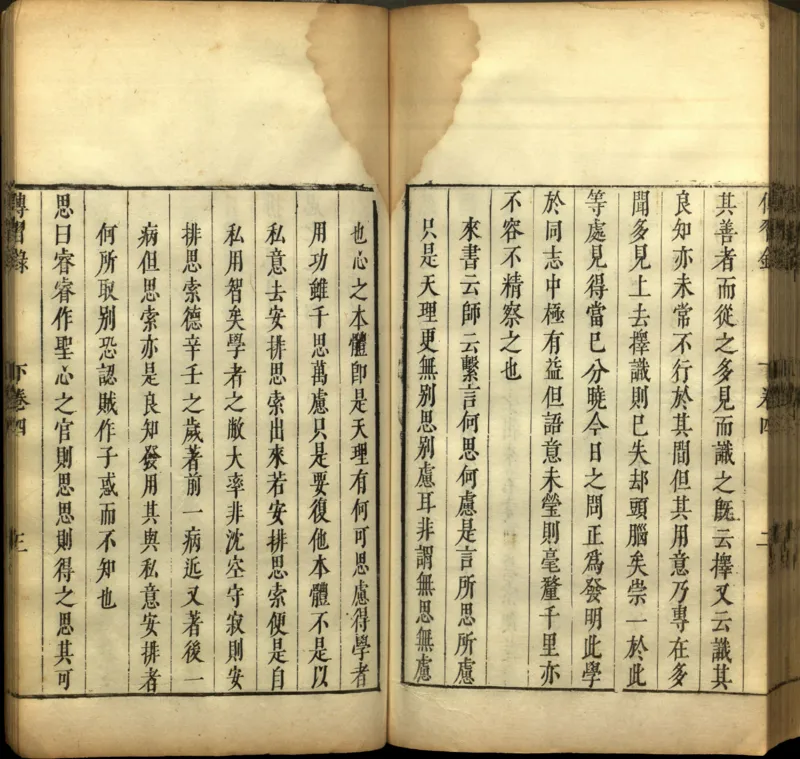 下卷四
二
其善者而從之多見而識之旣云擇又云識其
良知亦未常不行於其間但其用意乃專在多
聞多見上去擇識則已失却頭腦矣崇一於此
等處見得當已分曉今日之問正爲發明此學
於同志中極有益但語意未瑩則毫釐千里亦
不容不精察之也
來書云師云繫言何思何慮是言所思所慮
只是天理更無別思別慮耳非謂無思無慮
也心之本體卽是天理有何可思慮得學者
用功雖千思萬慮只是要復他本體不是以
私意去安排思索出來若安排思索便是自
私用智矣學者之敝大率非沈空守寂則安
排思索德辛壬之歲著前一病近又著後一
病但思索亦是良知發用其與私意安排者
何所取別恐認賊作子惑而不知也
思曰睿睿作聖心之官則思思則得之思其可
傳習錄
下卷四
三